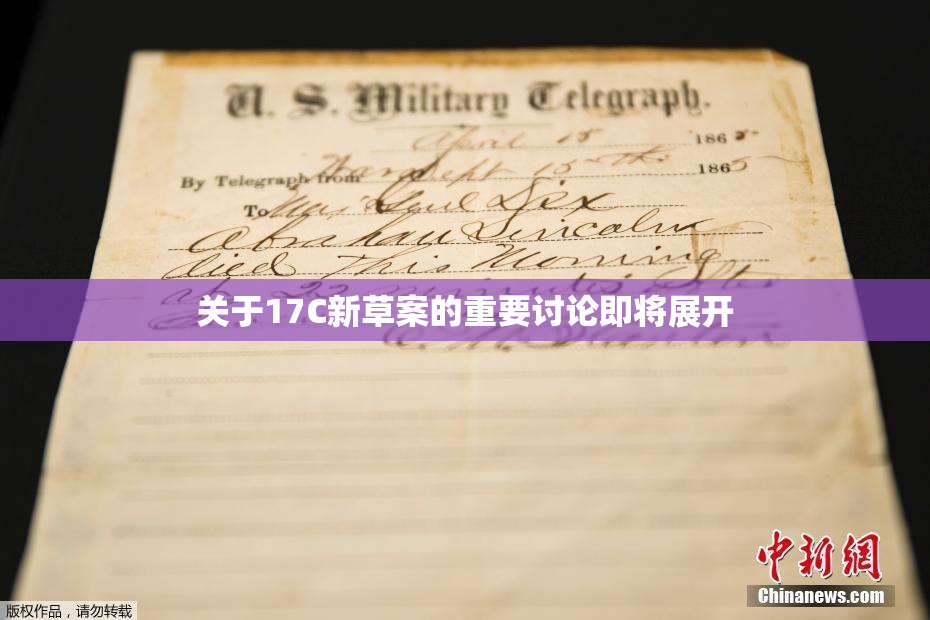 U. S. Military Telegraph.
April 15 1865
By Telegraph from War Dept 15th 1865
To Maj Genl Dix
Abraham Lincoln
died This Morning
at 22 minutes after
关于17C新草案的重要讨论即将展开
E. M. Stanton
中新网
Chinanews.com
版权作品，请勿转载